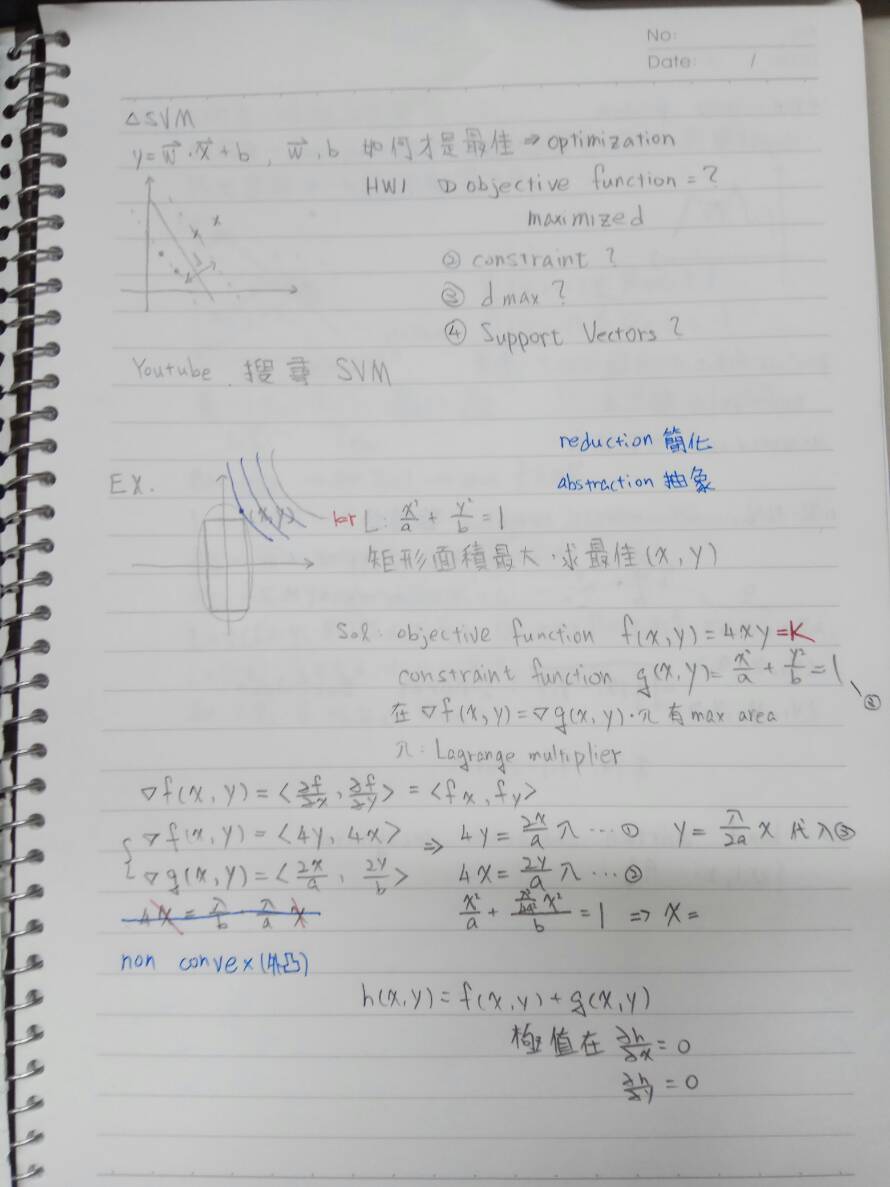 No:
Date: /
△SVM
y=w⃗·x⃗+b, w⃗,b 如何才是最佳 ⇒ optimization
HW1 ① objective function = ?
maximized
② constraint ?
③ d max ?
④ Support Vectors ?
Youtube 搜尋 SVM
reduction 簡化
abstraction 抽象
EX.
(x,y)
L: x²/a + y²/b = 1
矩形面積最大,求最佳(x,y)
Sol: objective function f(x,y)=4xy=K
constraint function g(x,y)= x²/a + y²/b = 1
③
在 ▽f(x,y)=▽g(x,y)·π 有 max area
π: Lagrange multiplier
▽f(x,y)=<∂f/∂x, ∂f/∂y> = <fx, fy>
▽f(x,y)=<4y, 4x> ⇒ 4y = 2x/a π ...① y = π/2a x 代入③
▽g(x,y)=<2x/a, 2y/b> 4x = 2y/a π ...②
4x = π/b · π/a x
x²/a + x²/b = 1 ⇒ x =
non convex(外凸)
h(x,y)=f(x,y)+g(x,y)
極值在 ∂h/∂x = 0
∂h/∂y = 0